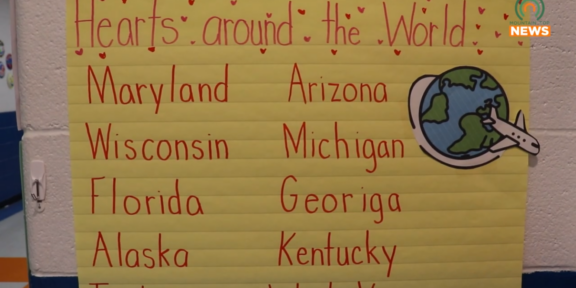 NEWS
Hearts around the World
Maryland Arizona
Wisconsin Michigan
Florida Georiga
Alaska Kentucky